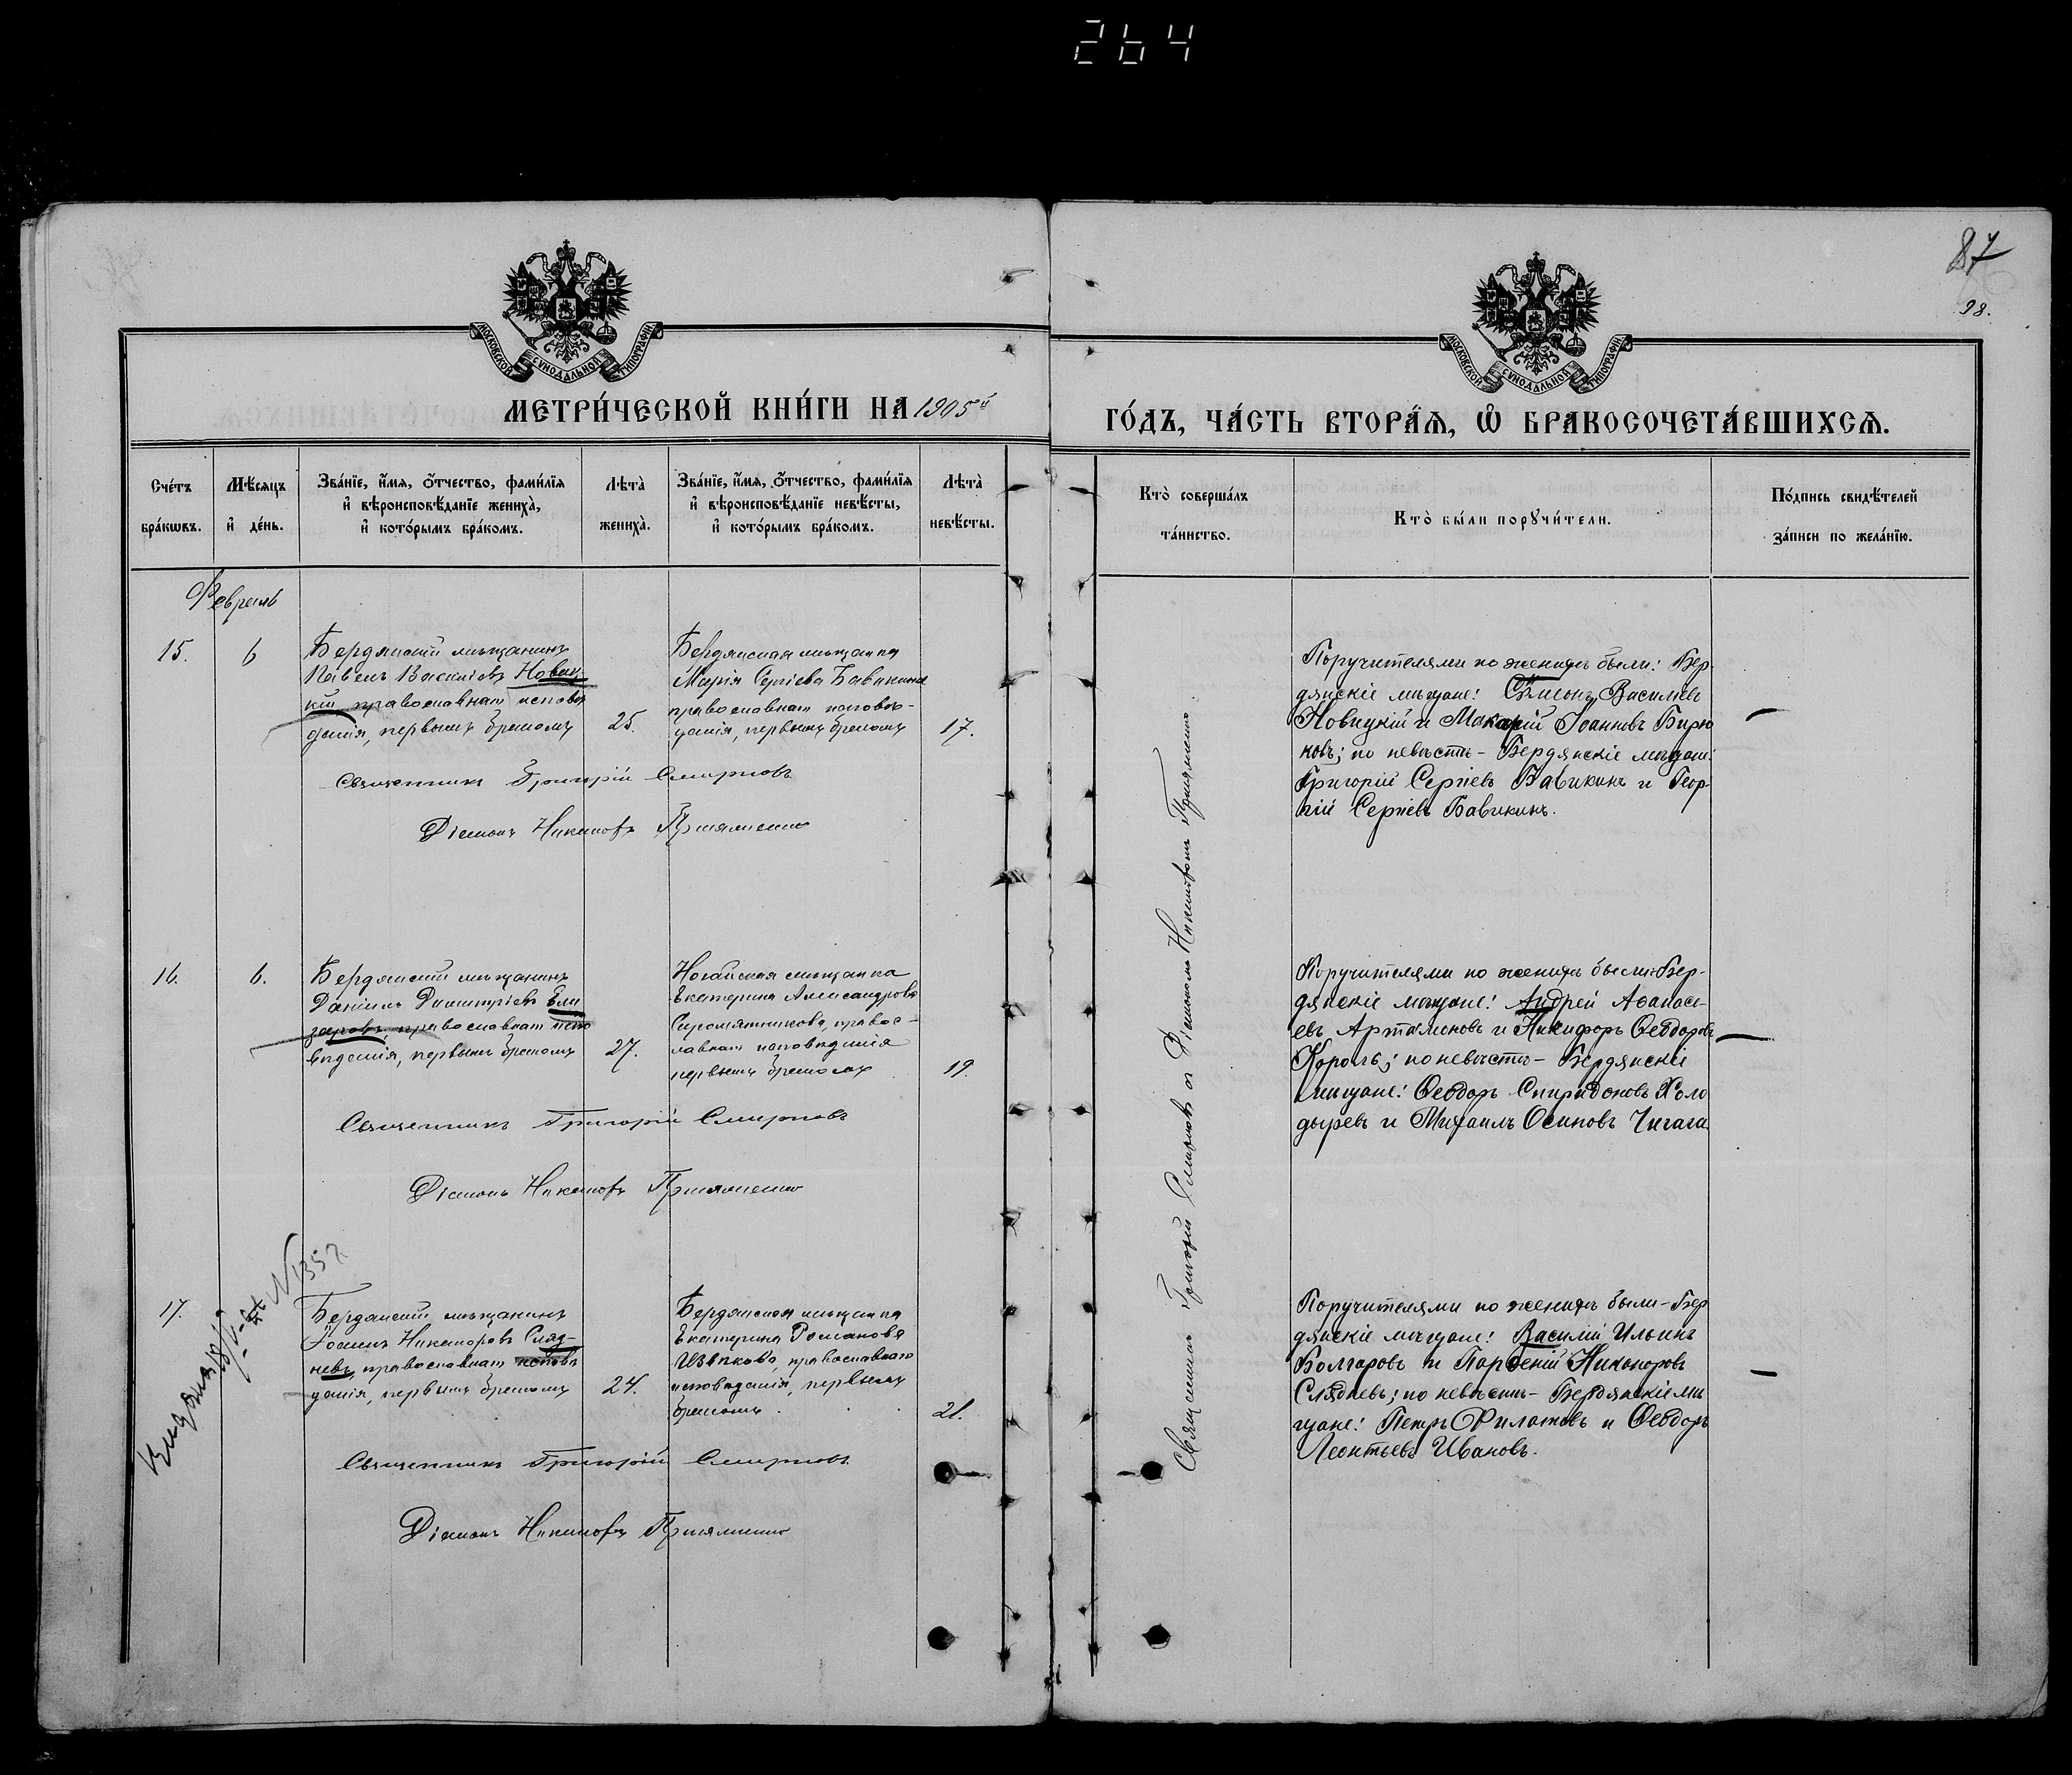 264
87
98.
МОСКОВСКОЙ СѴНОДАЛЬНОЙ ТИПОГРАФІИ
МОСКОВСКОЙ СѴНОДАЛЬНОЙ ТИПОГРАФІИ
МЕТРИ́ЧЕСКОЙ КНИ́ГИ НА 1905й
ГО́ДЪ, ЧА́СТЬ ВТОРА́Ѧ, Ѡ҆ БРАКОСОЧЕТА́ВШИХСѦ.
Сче́тъ
бра́кѡвъ.
Мѣ́сяцъ
и҆ де́нь.
Зва́нїе, и҆́мя, ѻ҆́тчество, фами́лїя
и҆ вѣроисповѣ́данїе жениха̀,
и҆ кото́рымъ бра́комъ.
Лѣта̀
жениха̀.
Зва́нїе, и҆́мя, ѻ҆́тчество, фами́лїя
и҆ вѣроисповѣ́данїе невѣ́сты,
и҆ кото́рымъ бра́комъ.
Лѣта̀
невѣ́сты.
Кто̀ соверша́лъ
та́инство.
Кто̀ бы́ли порꙋчи́тели.
По́дпись свидѣ́телей
за́писи по жела́нїю.
Февраль
15.
6
Бердянскій мѣщанинъ
Павелъ Василіевъ Новиц
кій православнаго исповѣ
данія, первымъ бракомъ
25.
Бердянская мѣщанка
Марія Сергіева Бавыкина
православнаго исповѣ-
данія, первымъ бракомъ
17.
Поручителями по женихѣ были: Бер-
дянскіе мѣщане: Симеонъ Василіевъ
Новицкій и Макарій Іоанновъ Бирю
ковъ; по невѣстѣ - Бердянскіе мѣщане:
Григорій Сергіевъ Бавыкинъ и Геор-
гій Сергіевъ Бавыкинъ.
Священникъ Григорій Смирновъ
Діаконъ Никаноръ
16.
6.
Бердянскій мѣщанинъ
Даніилъ Димитріевъ Ели
заровъ, православнаго испо
вѣданія, первымъ бракомъ
27.
Ногайская мѣщанка
Екатерина Александрова
Сыромятникова, правос-
лавнаго исповѣданія
первымъ бракомъ
19.
Поручителями по женихѣ были: Бер-
дянскіе мѣщане: Андрей Аѳанасі-
евъ Артамоновъ и Никифоръ Ѳеодоровъ
Король; по невѣстѣ - Бердянскіе
мѣщане: Ѳеодоръ Спиридоновъ Холо
дыревъ и Михаилъ Осиповъ Чигага
Священникъ Григорій Смирновъ
Діаконъ Никаноръ
17.
Бердянскій мѣщанинъ
Іоаннъ Никаноровъ Сляд-
невъ, православнаго исповѣ
данія, первымъ бракомъ
24.
Бердянская мѣщанка
Екатерина Романова
православнаго
исповѣданія, первымъ
бракомъ
21.
Поручителями по женихѣ были - Бер
дянскіе мѣщане: Василій Ильинъ
Болгаровъ и Парѳеній Никаноровъ
Слядневъ; по невѣстѣ - Бердянскіе мѣ
щане: Петръ Филатовъ и Ѳеодоръ
Леонтьевъ Ивановъ.
Священникъ Григорій Смирновъ
Діаконъ Никаноръ
Священникъ Григорій Смирновъ и Діаконъ Никаноръ